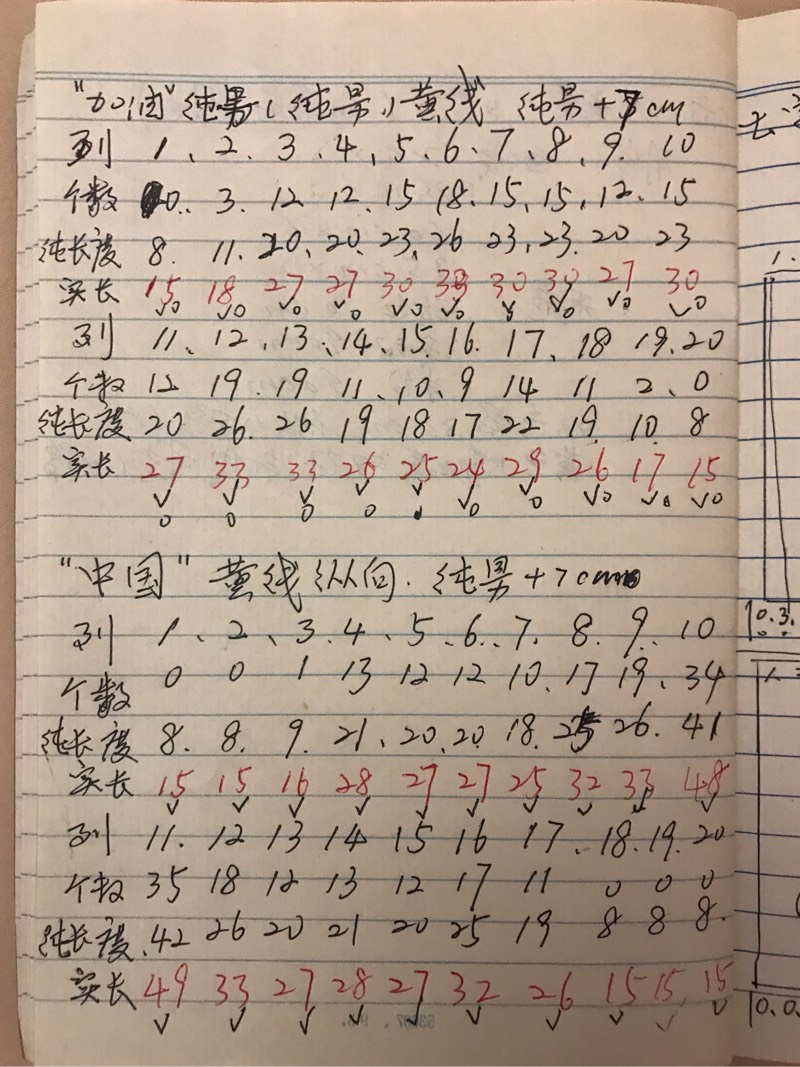 "加油"纯男(纯男)黄线 纯男+7cm
列 1、2、3、4、5、6、7、8、9、10
个数 0.. 3. 12 12. 15 18. 15, 15, 12. 15
纯长度 8. 11. 20. 20. 23. 26 23. 23. 20 23
实长 15 18 27 27 30 33 30 30 27 30
列 11、12、13、14、15. 16. 17、18 19. 20
个数 12 19. 19 11. 10. 9 14 11 2、0
纯长度 20 26. 26 19 18 17 22 19. 10. 8
实长 27 33 33 26 25 24 29 26 17 15
"中国" 黄线纵向. 纯男+7cm
列 1、2、3. 4、5、6. 7. 8. 9. 10
个数 0 0 1 13 12 12 10. 17 19. 34
纯长度 8. 8. 9. 21、20. 20. 18. 25 26. 41
实长 15 15 16 28 27 27 25 32 33 48
列 11. 12 13 14 15 16 17. 18. 19. 20
个数 35 18 12 13 12 17 11 0 0 0
纯长度. 42 26 20 21 20 25 19 8 8 8.
实长 49 33 27 28 27 32 26 15 15. 15
1.
0.3.
0.0.